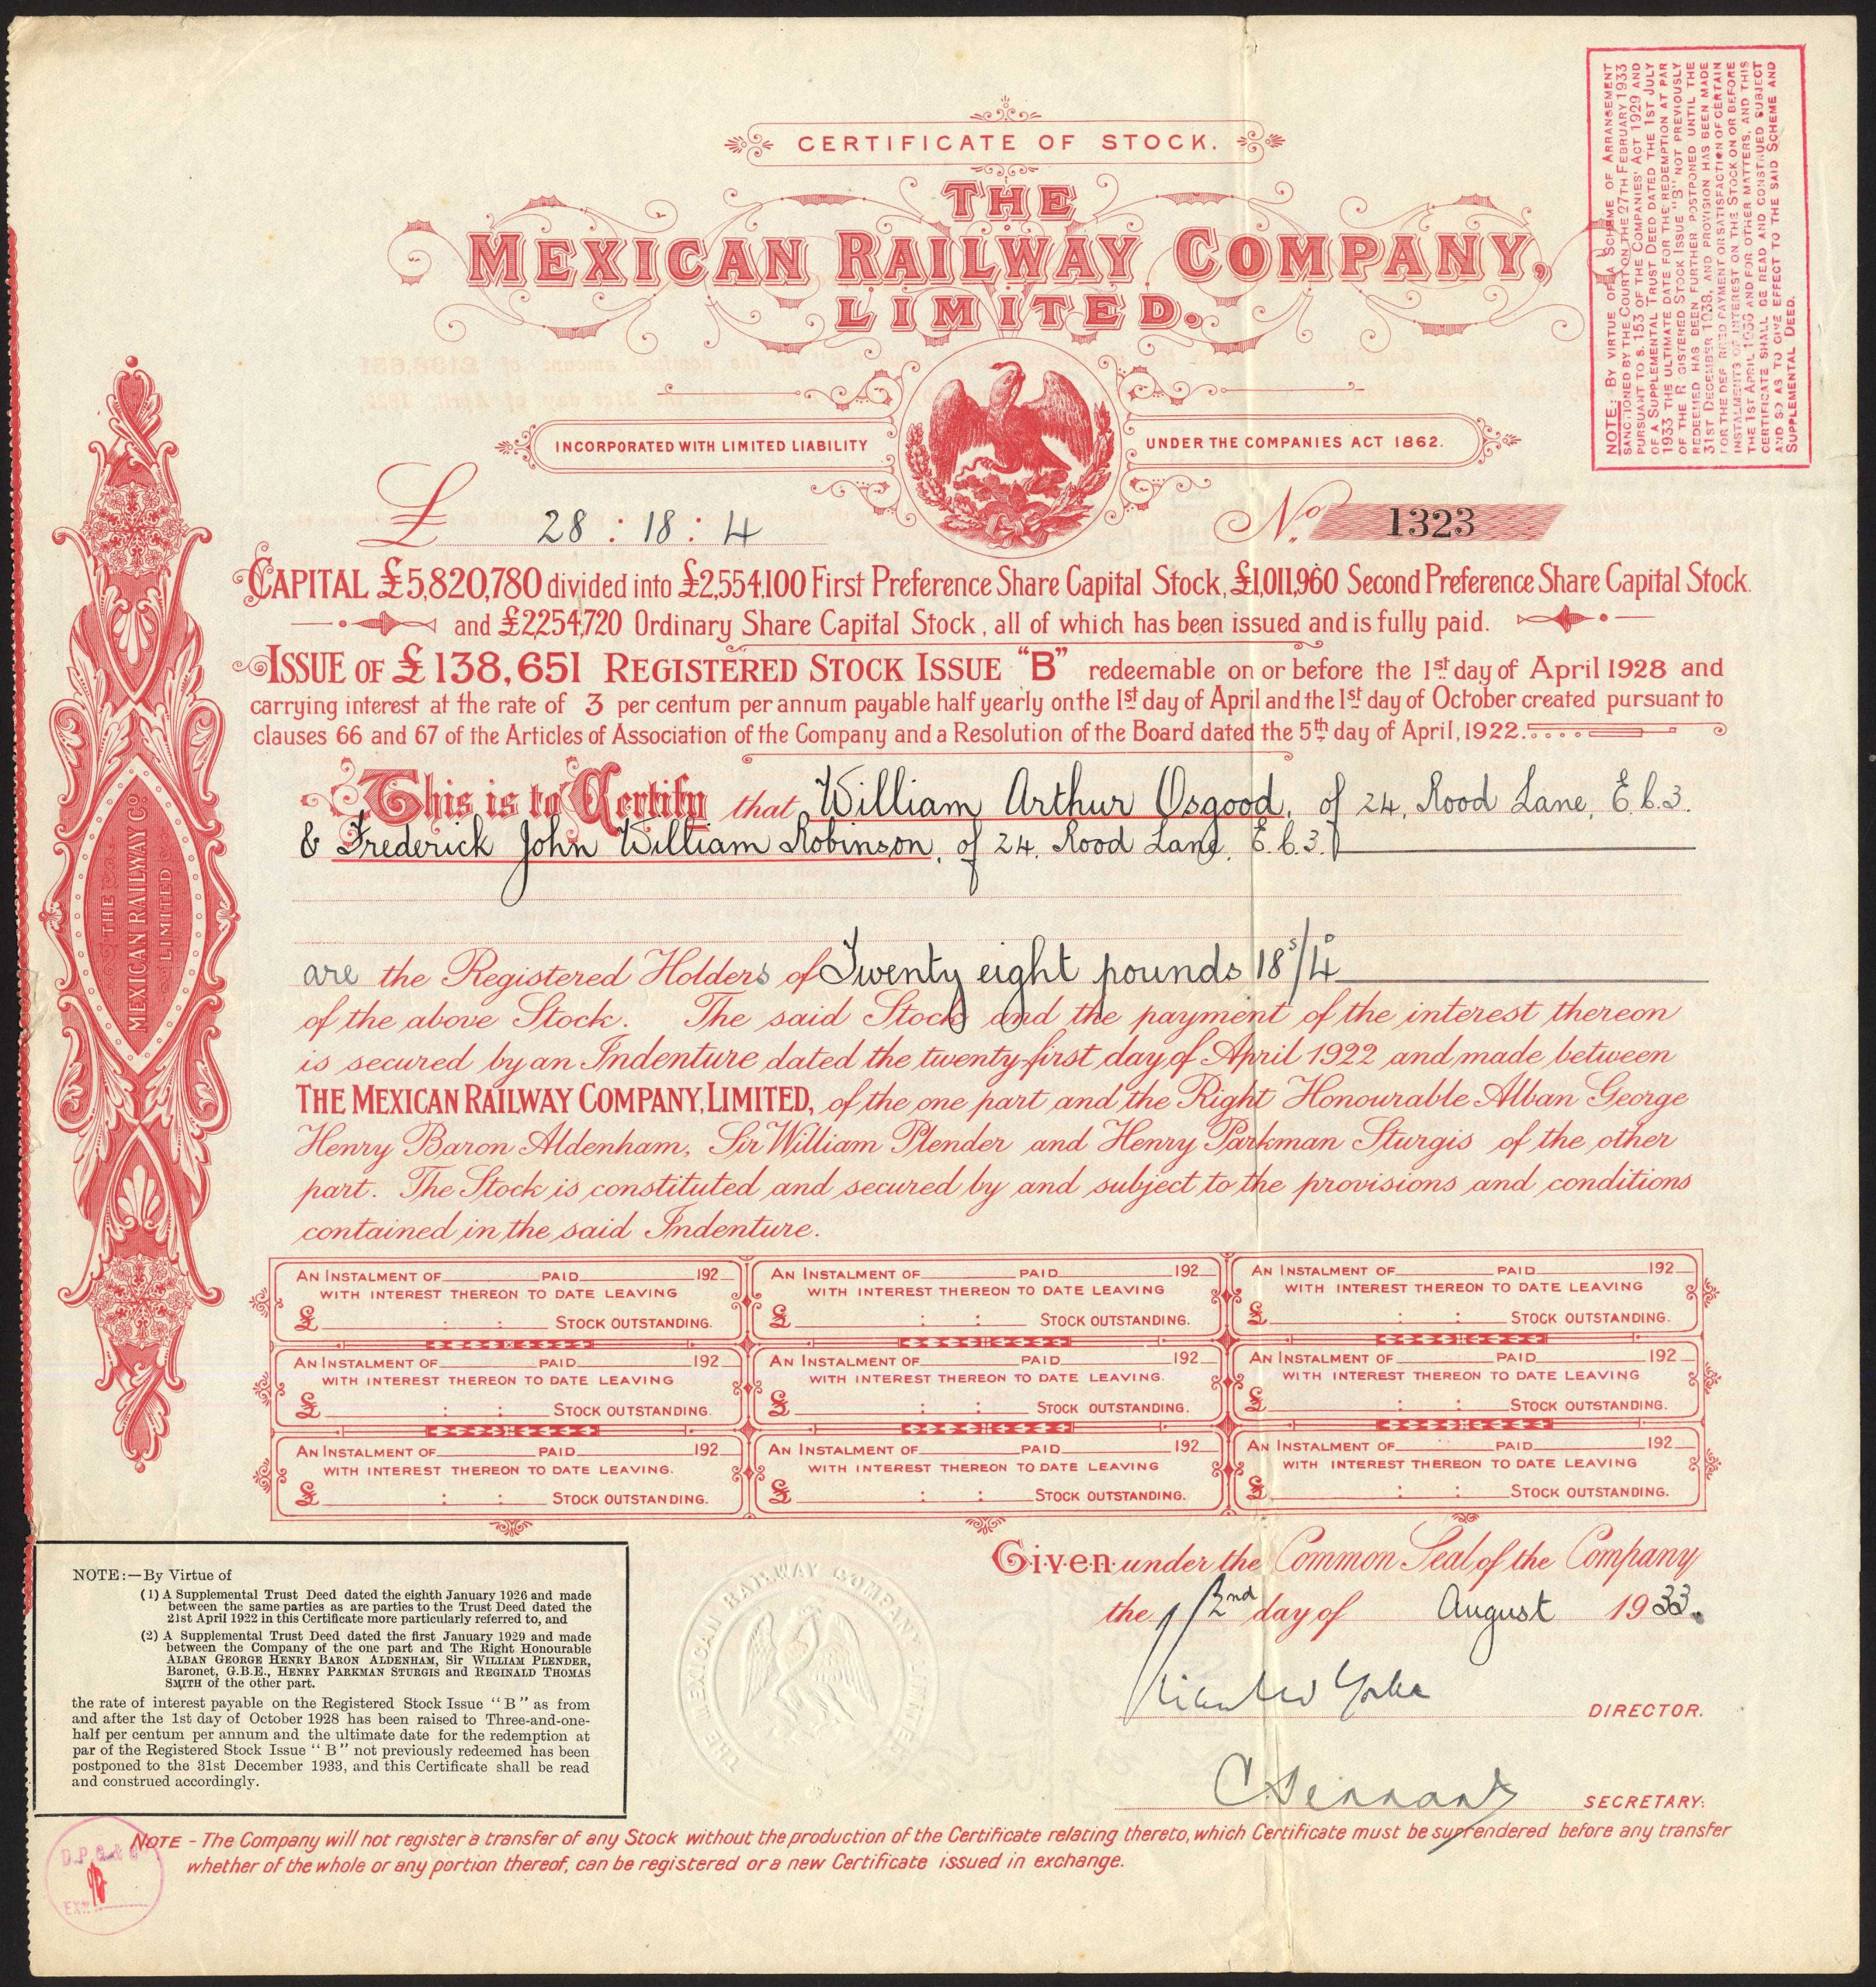 CERTIFICATE OF STOCK.
THE
MEXICAN RAILWAY COMPANY,
LIMITED.
INCORPORATED WITH LIMITED LIABILITY
UNDER THE COMPANIES ACT 1862.
£ 28 : 18 : 4
No. 1323
CAPITAL £5,820,780 divided into £2,554,100 First Preference Share Capital Stock, £1,011,960 Second Preference Share Capital Stock.
and £2,254,720 Ordinary Share Capital Stock, all of which has been issued and is fully paid.
ISSUE OF £138,651 REGISTERED STOCK ISSUE "B" redeemable on or before the 1st day of April 1928 and
carrying interest at the rate of 3 per centum per annum payable half yearly on the 1st day of April and the 1st day of October created pursuant to
clauses 66 and 67 of the Articles of Association of the Company and a Resolution of the Board dated the 5th day of April, 1922.
This is to Certify that William Arthur Osgood, of 24, Rood Lane, E.C.3.
& Frederick John William Robinson, of 24, Rood Lane, E.C.3.
are the Registered Holders of Twenty eight pounds 18s/4d
of the above Stock. The said Stock and the payment of the interest thereon
is secured by an Indenture dated the twenty-first day of April 1922 and made between
THE MEXICAN RAILWAY COMPANY, LIMITED, of the one part and the Right Honourable Alban George
Henry Baron Aldenham, Sir William Plender and Henry Parkman Sturgis of the other
part. The Stock is constituted and secured by and subject to the provisions and conditions
contained in the said Indenture.
AN INSTALMENT OF PAID 192
WITH INTEREST THEREON TO DATE LEAVING
£ : : STOCK OUTSTANDING.
AN INSTALMENT OF PAID 192
WITH INTEREST THEREON TO DATE LEAVING
£ : : STOCK OUTSTANDING.
AN INSTALMENT OF PAID 192
WITH INTEREST THEREON TO DATE LEAVING
£ : : STOCK OUTSTANDING.
AN INSTALMENT OF PAID 192
WITH INTEREST THEREON TO DATE LEAVING
£ : : STOCK OUTSTANDING.
AN INSTALMENT OF PAID 192
WITH INTEREST THEREON TO DATE LEAVING.
£ : : STOCK OUTSTANDING.
AN INSTALMENT OF PAID 192
WITH INTEREST THEREON TO DATE LEAVING
£ : : STOCK OUTSTANDING.
AN INSTALMENT OF PAID 192
WITH INTEREST THEREON TO DATE LEAVING.
£ : : STOCK OUTSTANDING.
AN INSTALMENT OF PAID 192
WITH INTEREST THEREON TO DATE LEAVING
£ : : STOCK OUTSTANDING.
AN INSTALMENT OF PAID 192
WITH INTEREST THEREON TO DATE LEAVING
£ : : STOCK OUTSTANDING.
Given under the Common Seal of the Company
the 2nd day of August 1933.
DIRECTOR.
C Tennant
SECRETARY.
THE MEXICAN RAILWAY COMPANY LIMITED
NOTE:—By Virtue of
(1) A Supplemental Trust Deed dated the eighth January 1926 and made
between the same parties as are parties to the Trust Deed dated the
21st April 1922 in this Certificate more particularly referred to, and
(2) A Supplemental Trust Deed dated the first January 1929 and made
between the Company of the one part and The Right Honourable
ALBAN GEORGE HENRY BARON ALDENHAM, Sir WILLIAM PLENDER,
Baronet, G.B.E., HENRY PARKMAN STURGIS and REGINALD THOMAS
SMITH of the other part.
the rate of interest payable on the Registered Stock Issue "B" as from
and after the 1st day of October 1928 has been raised to Three-and-one-
half per centum per annum and the ultimate date for the redemption at
par of the Registered Stock Issue "B" not previously redeemed has been
postponed to the 31st December 1933, and this Certificate shall be read
and construed accordingly.
NOTE - The Company will not register a transfer of any Stock without the production of the Certificate relating thereto, which Certificate must be surrendered before any transfer
whether of the whole or any portion thereof, can be registered or a new Certificate issued in exchange.
THE
MEXICAN RAILWAY CO.
LIMITED
NOTE: BY VIRTUE OF A SCHEME OF ARRANGEMENT
SANCTIONED BY THE COURT ON THE 27TH FEBRUARY 1933
PURSUANT TO S. 153 OF THE COMPANIES' ACT 1929 AND
OF A SUPPLEMENTAL TRUST DEED DATED THE 1ST JULY
1933 THE ULTIMATE DATE FOR THE REDEMPTION AT PAR
OF THE REGISTERED STOCK ISSUE "B" NOT PREVIOUSLY
REDEEMED HAS BEEN FURTHER POSTPONED UNTIL THE
31ST DECEMBER 1938, AND PROVISION HAS BEEN MADE
FOR THE DEFERRED PAYMENT OR SATISFACTION OF CERTAIN
INSTALMENTS OF INTEREST ON THE STOCK ON OR BEFORE
THE 1ST APRIL AND FOR OTHER MATTERS, AND THIS
CERTIFICATE SHALL BE READ AND CONSTRUED SUBJECT
AND SO AS TO GIVE EFFECT TO THE SAID SCHEME AND
SUPPLEMENTAL DEED.